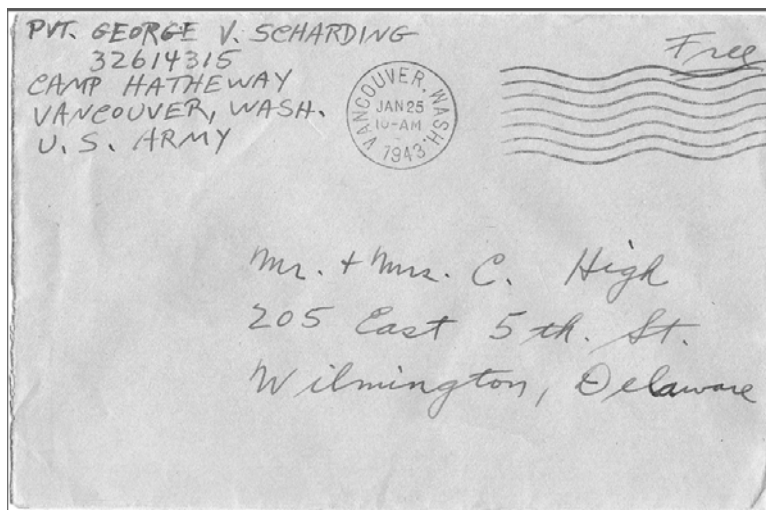 PVT. GEORGE V. SCHARDING
32614315
CAMP HATHEWAY
VANCOUVER, WASH.
U. S. ARMY
VANCOUVER, WASH.
JAN 25
10-AM
1943
Free
Mr. + Mrs. C. High
205 East 5th. St.
Wilmington, Delaware